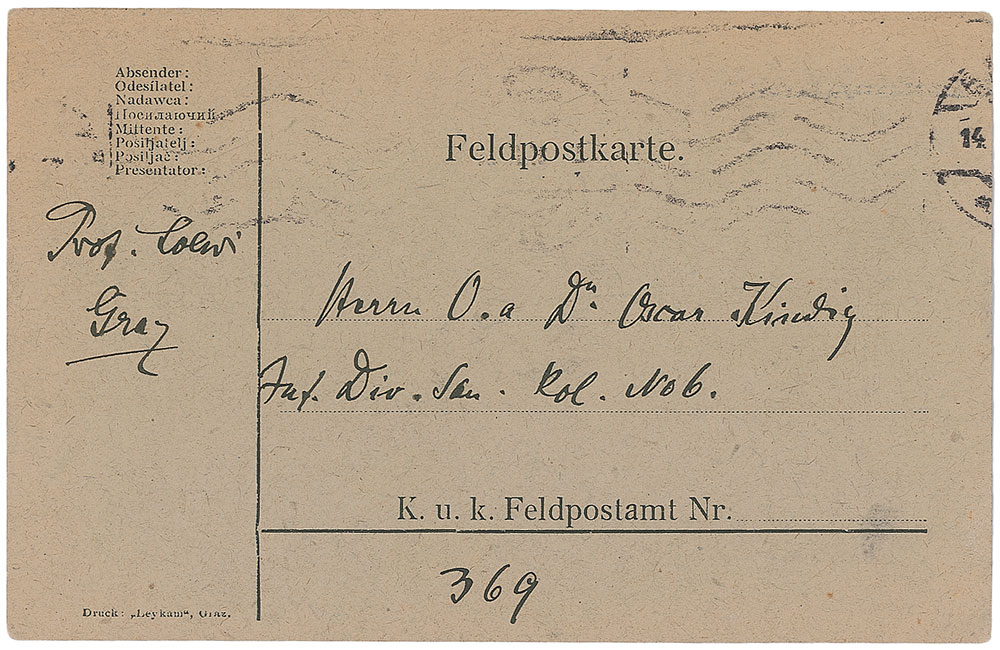 Absender:
Odesílatel:
Nadawca:
Посилаючий:
Mittente:
Pošiljatelj:
Posiljač:
Presentator:
Prof. Loewi
Graz
Feldpostkarte.
Herrn O.a Dr. Oscar Kindig
Inf. Div. San. Kol. No 6.
K. u. k. Feldpostamt Nr.
369
Druck: „Leykam“, Graz.
14